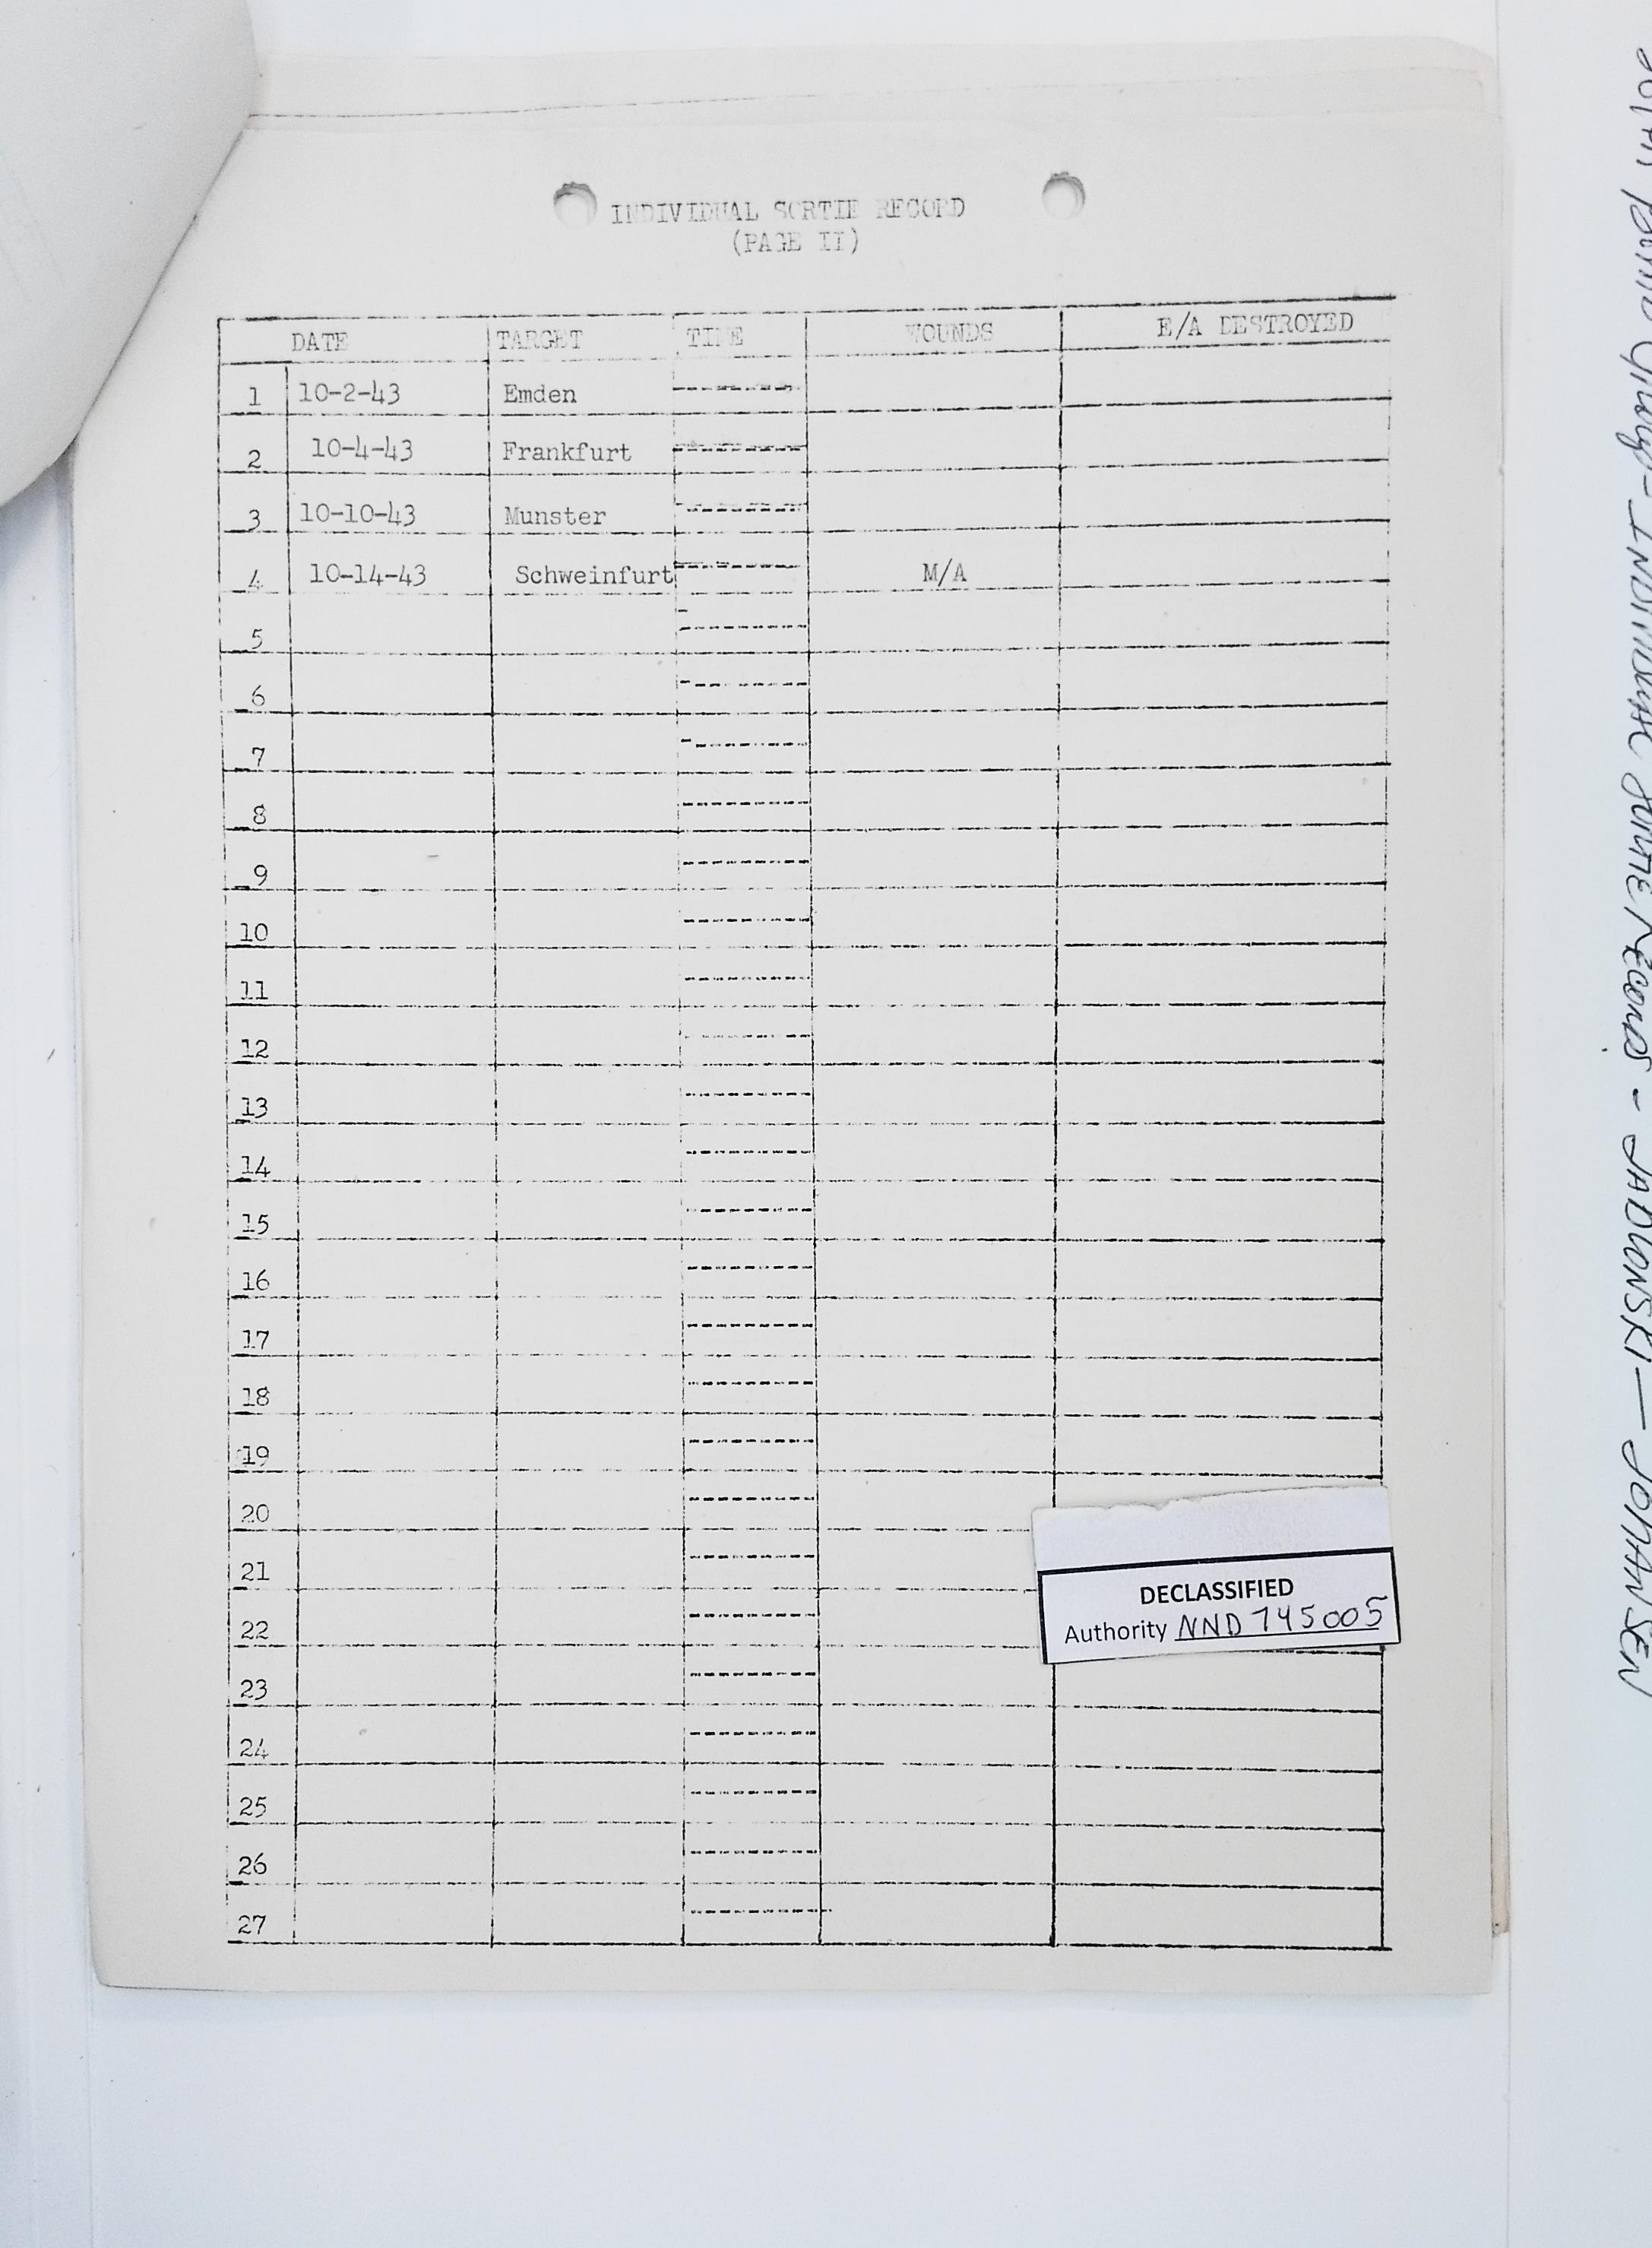 INDIVIDUAL SORTIE RECORD
(PAGE II)
DATE TARGET TIME WOUNDS E/A DESTROYED
1 10-2-43 Emden
2 10-4-43 Frankfurt
3 10-10-43 Munster
4 10-14-43 Schweinfurt M/A
5
6
7
8
9
10
11
12
13
14
15
16
17
18
19
20
21
22
23
24
25
26
27
DECLASSIFIED
Authority NND 745005
BOMB GROUP - INDIVIDUAL SORTIE RECORDS - JADLOWSKI — JOHANSEN